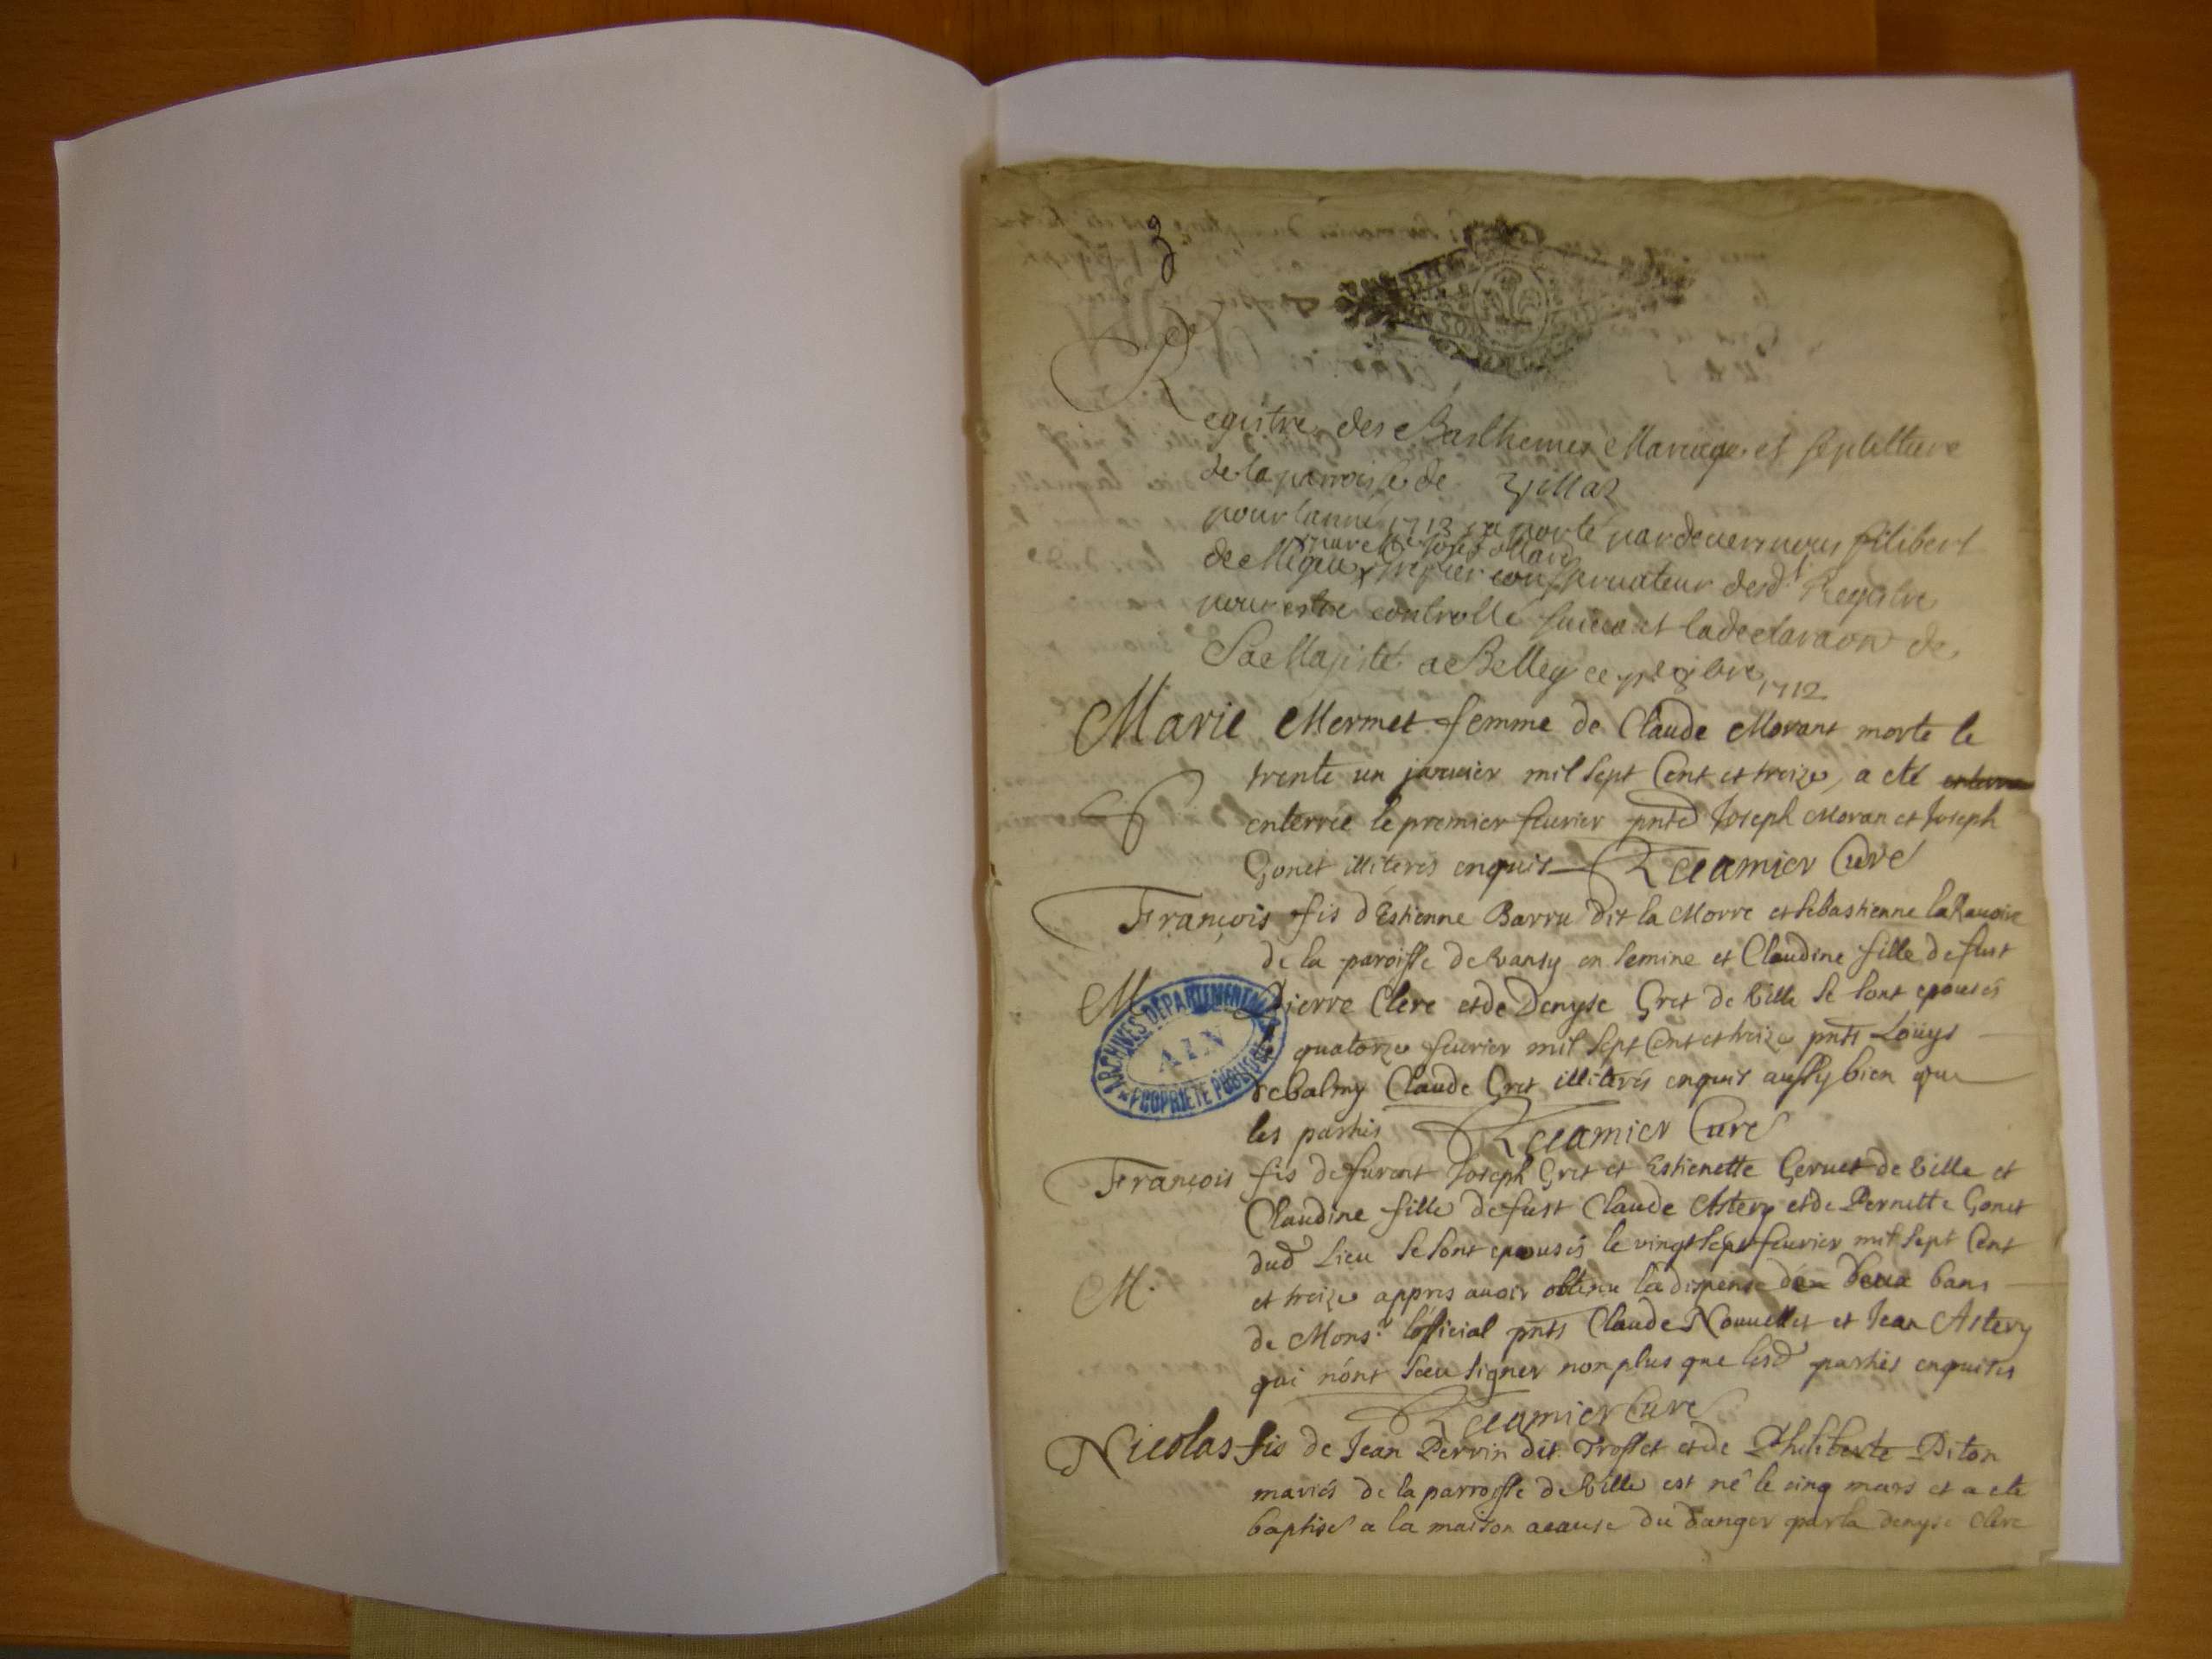 3
Registre des Basthemes Mariage et sepulture
de la parroisse de Villas
pour l'anné 1713 a porté pardevers nous filibert
de Migieu greffier conservateur desd. Registre
pour estre controllé suiveant la declaraon de
Sa Majesté a Belley ce 8bre 1712
Marie Mermet femme de Claude Morant morte le
trente un janvier mil sept Cent et treize, a eté
S enterrée le premier feurier pntd Joseph Moran et Joseph
Gonet illiteres enquis Reamier Curé
François fis d'Estienne Barru dit la Morre et Sebastienne laRavoire
de la paroisse de Vansy en Semine et Claudine fille de fust
M Pierre Clere et de Denyse Gret de Ville se sont epousés
ARCHIVES DÉPARTEMENTALES
AIN
PROPRIÉTÉ PUBLIQUE
le quatorze feurier mil sept Cent et treize pnts Loüys
deBalmy Claude Gret illiterés enquis aussy bien que
les parties Reamier Curé
François fis de furent Joseph Gret et Estienette Gervet de Ville et
Claudine fille de fust Claude Astery et de Pernette Gonet
dud Lieu se sont epousés le vingt sept feurier mil sept Cent
M. et treize appres auoir obtenu la dispense de deux bans
de Mons.r l'official pnts Claude Nouuellet et Jean Astery
qui n'ont sceu signer non plus que lesd parties enquises
Reamier Curé
Nicolas fis de Jean Perrin dit Trosset et de Philiberte Piton
mariés de la parroisse de Ville est né le cinq mars et a eté
baptisé a la maison acause du danger par la denyse Clere